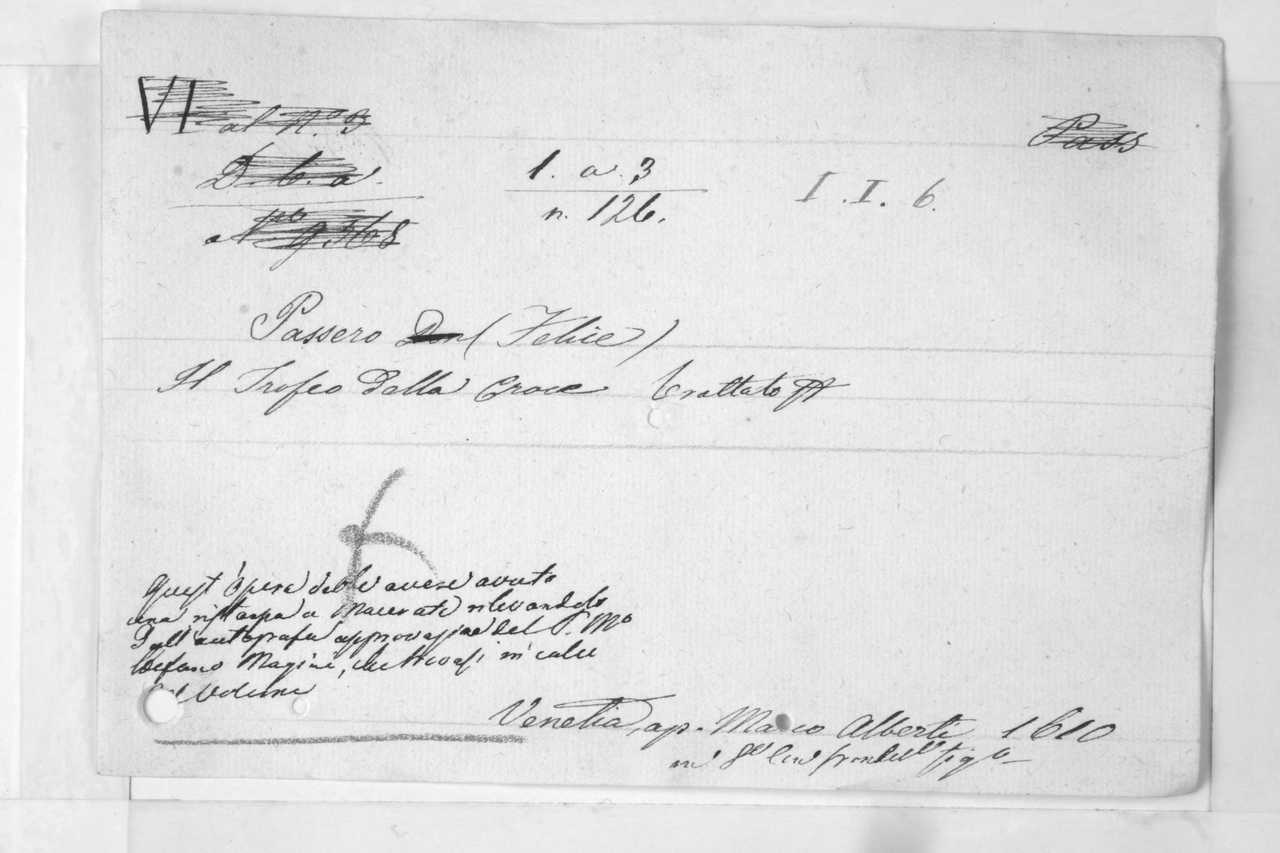 VI al N.º 3
Pass
D. b. a.
1. a. 3
n. 126.
I. I. 6.
Nº
Passero Don (Felice)
Il Trofeo della Croce trattato
Quest'Opera debbe avere avuto
una ristampa a Macerata rilevandolo
dall'autografa approvazione del P. Mº
Stefano Magini, che trovasi in calce
del Volume
Venetia, ap. Marco Alberti 1610
in 8º con frontesº figº